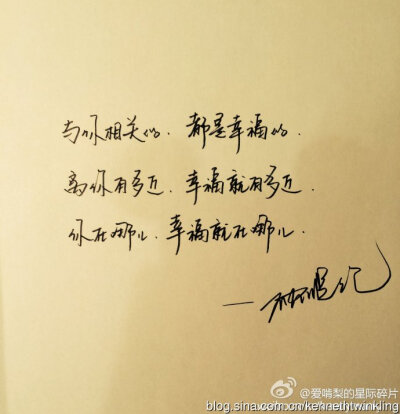 与你相关的.都是幸福的.
离你有多近.幸福就有多近.
你在哪儿.幸福就在哪儿.
@爱啃梨的星际碎片
blog.sina.com.cn/kennethtwinkling